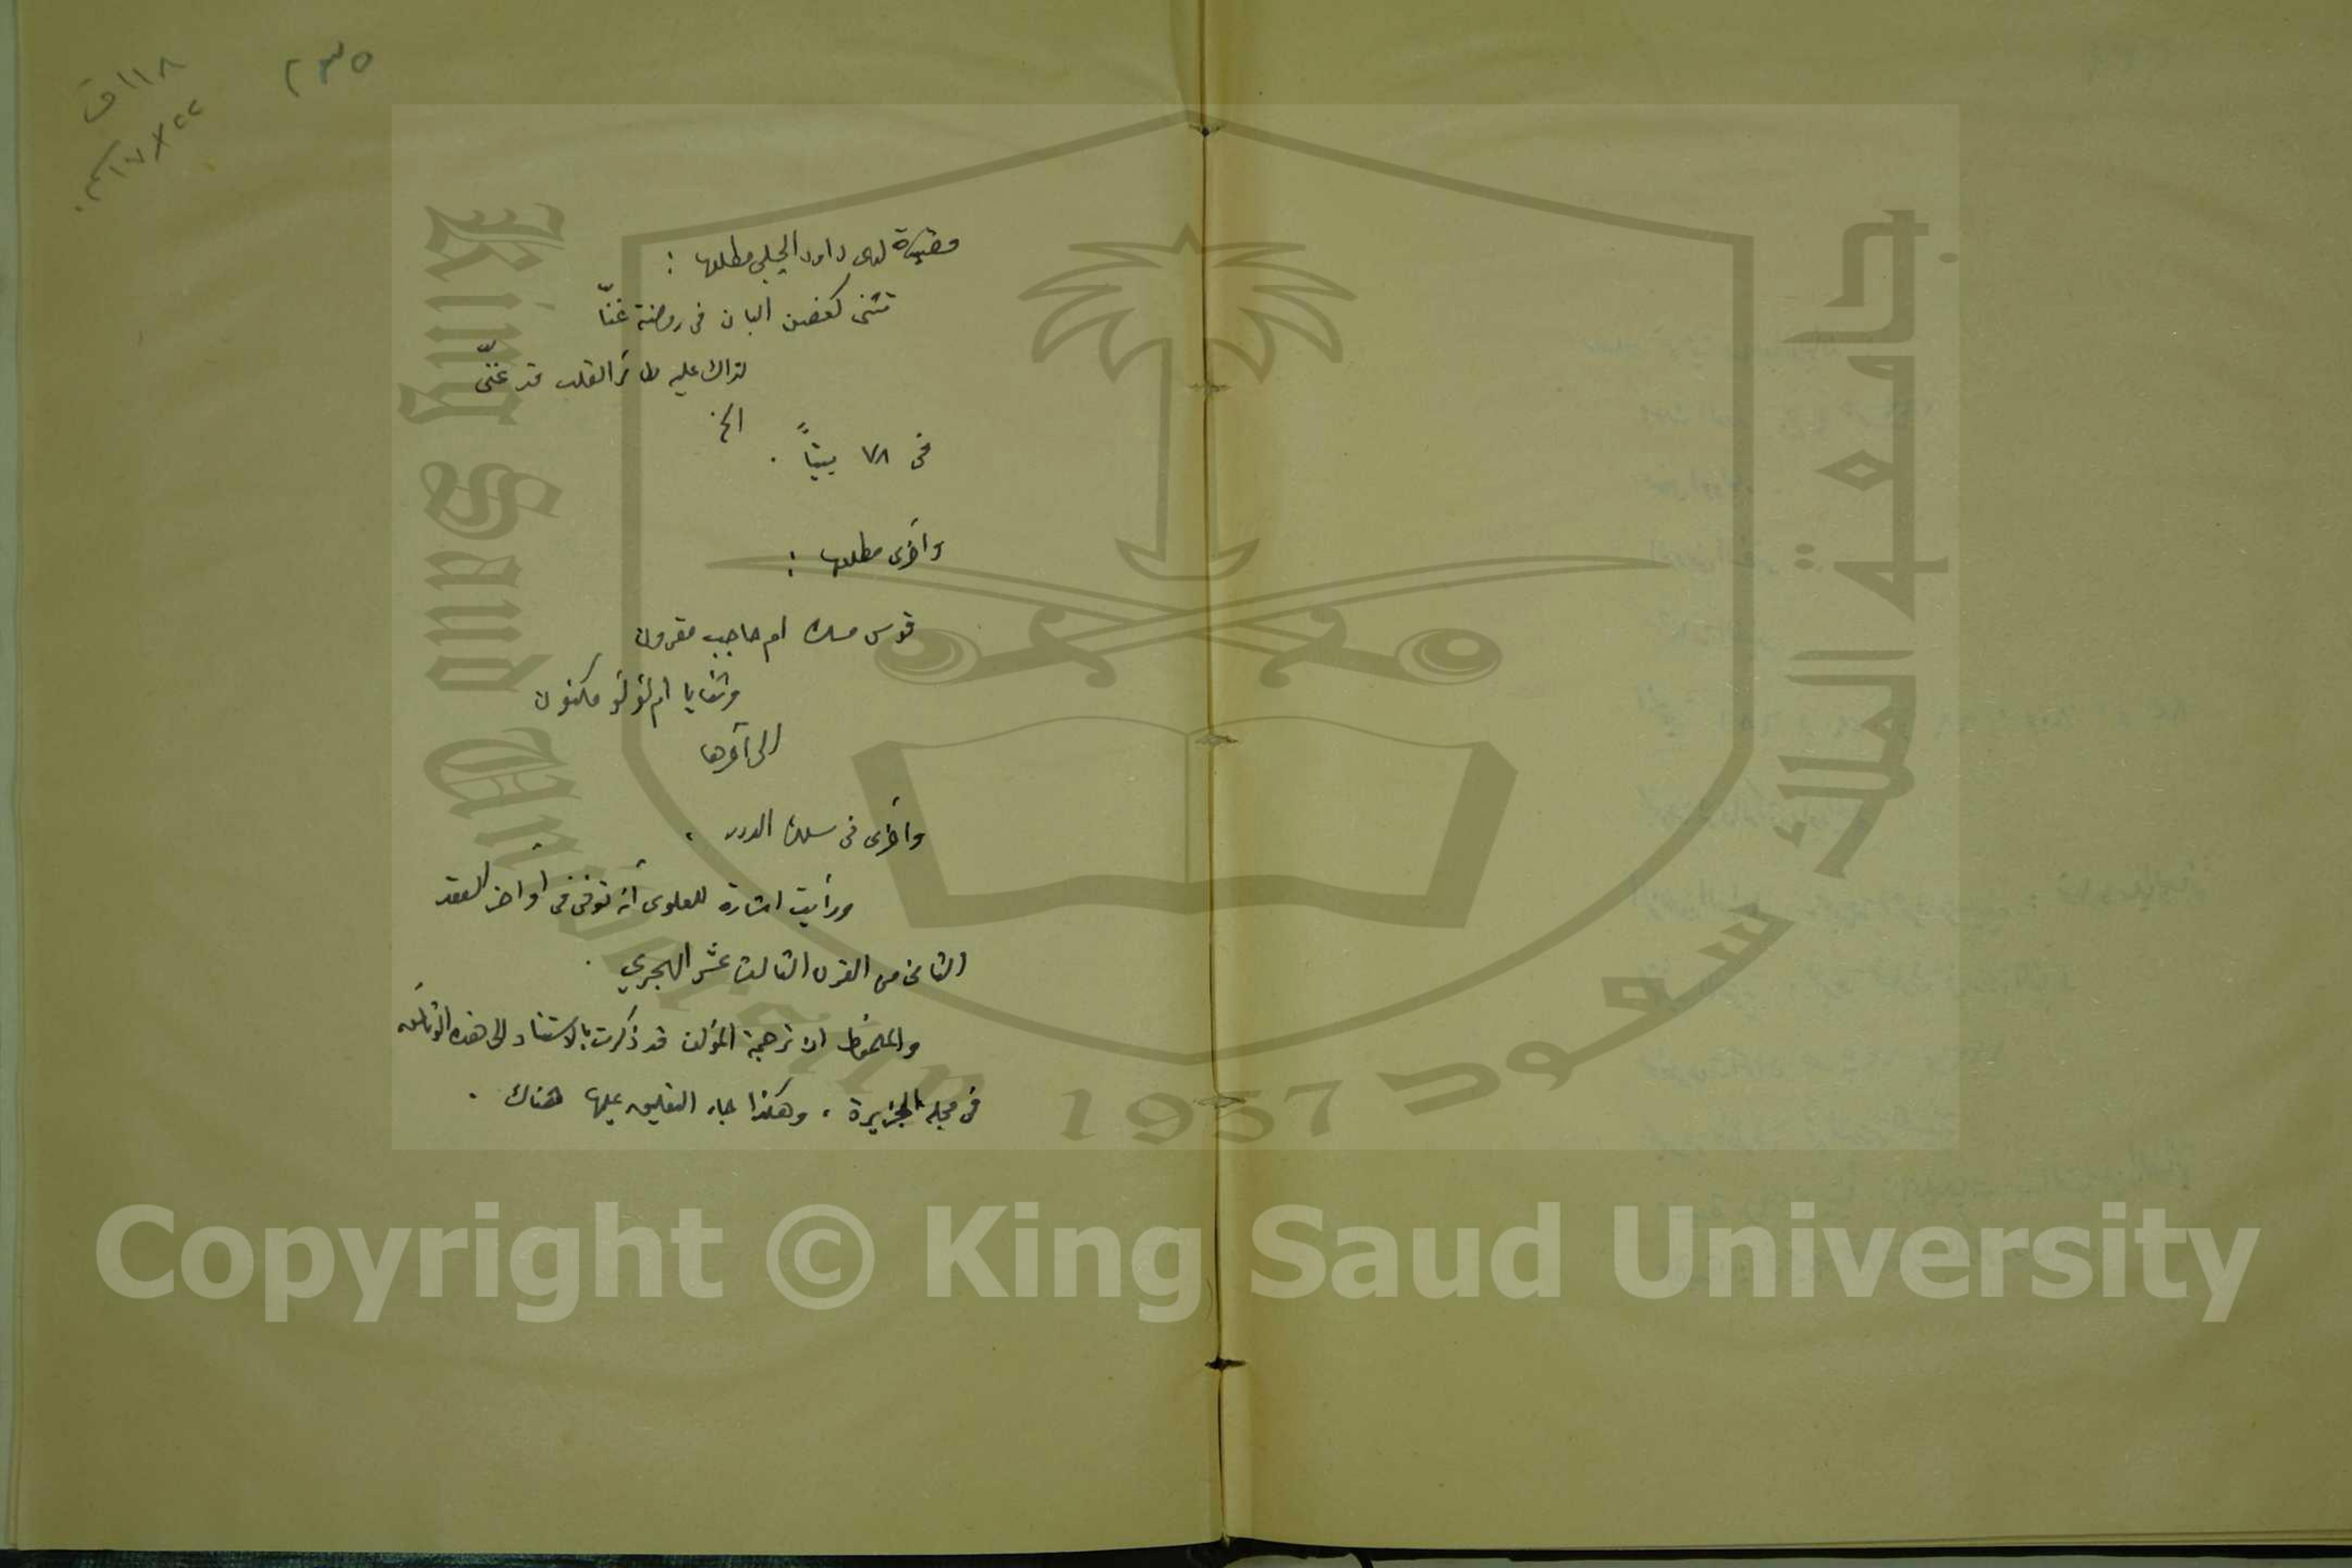 ٢٣٥
١١٨ ق
٢٢ × ١٧ سم
وقصيدة لدى داود الجلبي مطلعها :
تثنى كغصن البان في روضة غنّا
لذاك عليه طائر القلب قد غنّى
الخ
في ٧٨ بيتاً .
وأخرى مطلعها :
قوس مسك ام حاجب مقرون
وثنايا ام لؤلؤ مكنون
الى آخرها
وأخرى في سلك الدرر .
ورأيت اشارة للعلوى أنه توفى في أواخر العقد
الثاني من القرن الثالث عشر الهجري .
والملحوظ ان ترجمة المؤلف قد ذكرت بالاستناد الى هذه الوثائق
في مجلة الجزيرة ، وهكذا جاء التعليق عليها هناك .
جامعة الملك سعود
King Saud University
1957
Copyright © King Saud University